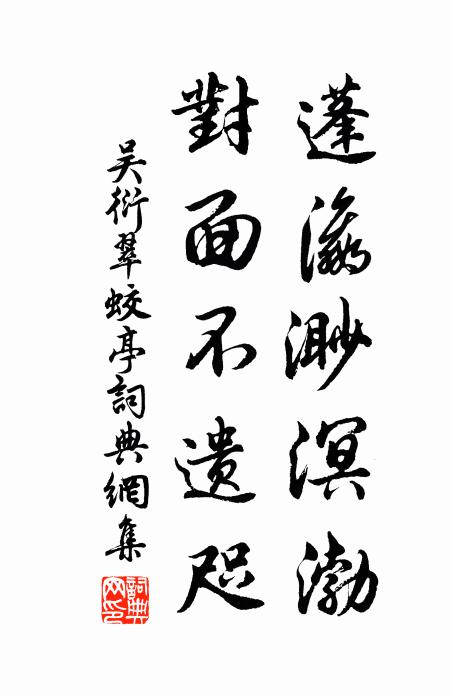 蓬瀛渺溟渤
對面不遺咫
吴衍翠蛟亭詞典網集
詞典網印